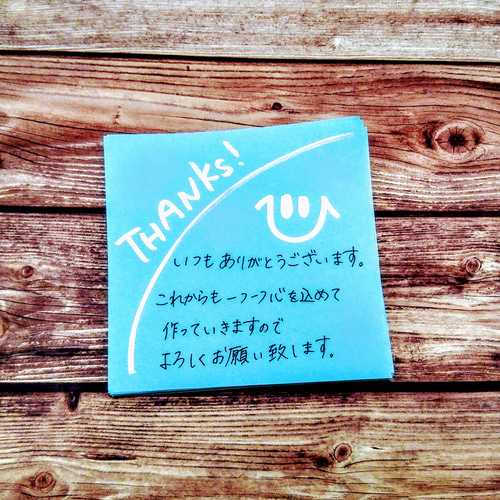 THANKS!
いつもありがとうございます。
これからも一つ一つ心を込めて
作っていきますので
よろしくお願い致します。